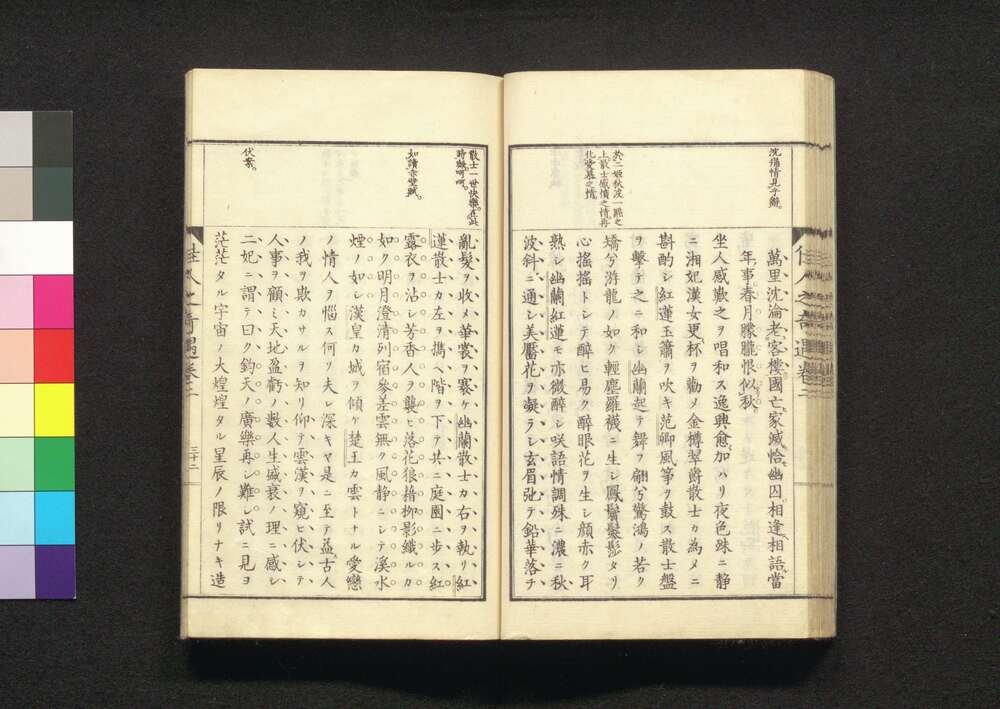 沈痛情見乎辭。
於二姬秋波一睇之
上散士感憤之情再
化愛慕之情
佳人之奇遇 卷二
萬里沈淪老客樓國亡家滅恰幽囚相逢相語當
年事春月朦朧恨似秋
坐人感歎之ヲ唱和ス逸興愈加ハリ夜色殊ニ静
ニ湘妃漢女更杯ヲ勸メ金樽翠爵散士カ為メニ
斟酌シ紅蓮玉簫ヲ吹キ范卿風箏ヲ鼓ス散士盤
ヲ擊テ之ニ和シ幽蘭起テ舞フ翩兮驚鴻ノ若ク
矯兮游龍ノ如ク輕塵羅襪ニ生シ鳳鬢鬖髿タリ
心搖搖トシテ醉ヒ易ク醉眼花ヲ生シ顏亦ク耳
熟シ幽蘭紅蓮モ亦微醉シ咲語情調殊ニ濃ニ秋
波斜ニ通シ美靨花ヲ凝ラシ玄眉弛テ鉛華落チ
散士一世快樂。在此
時歟。呵呵。
如讀赤壁賦。
伏案。
亂髮ヲ收メ華裳ヲ褰ケ幽蘭散士カ右ヲ執リ紅
蓮散士カ左ヲ携ヘ階ヲ下テ共ニ庭園ニ步ス紅
露衣ヲ沾シ芳香人ヲ襲ヒ落花狼藉柳影織ルカ
如ク明月澄清列宿參差雲無ク風静ニシテ溪水
煙ノ如シ漢皇カ城ヲ傾ケ楚王カ雲トナル愛戀
ノ情人ヲ惱ス何ソ夫レ深キヤ是ニ至テ益古人
ノ我ヲ欺カサルヲ知リ仰テ雲漢ヲ窺ヒ伏シテ
人事ヲ顧ミ天地盈虧ノ數人生盛衰ノ理ニ感シ
二妃ニ謂テ曰ク鈞天ノ廣樂再シ難シ試ニ見ヨ
茫茫タル宇宙ノ大煌煌タル星辰ノ限リナキ造
佳人之奇遇 卷二
三十二